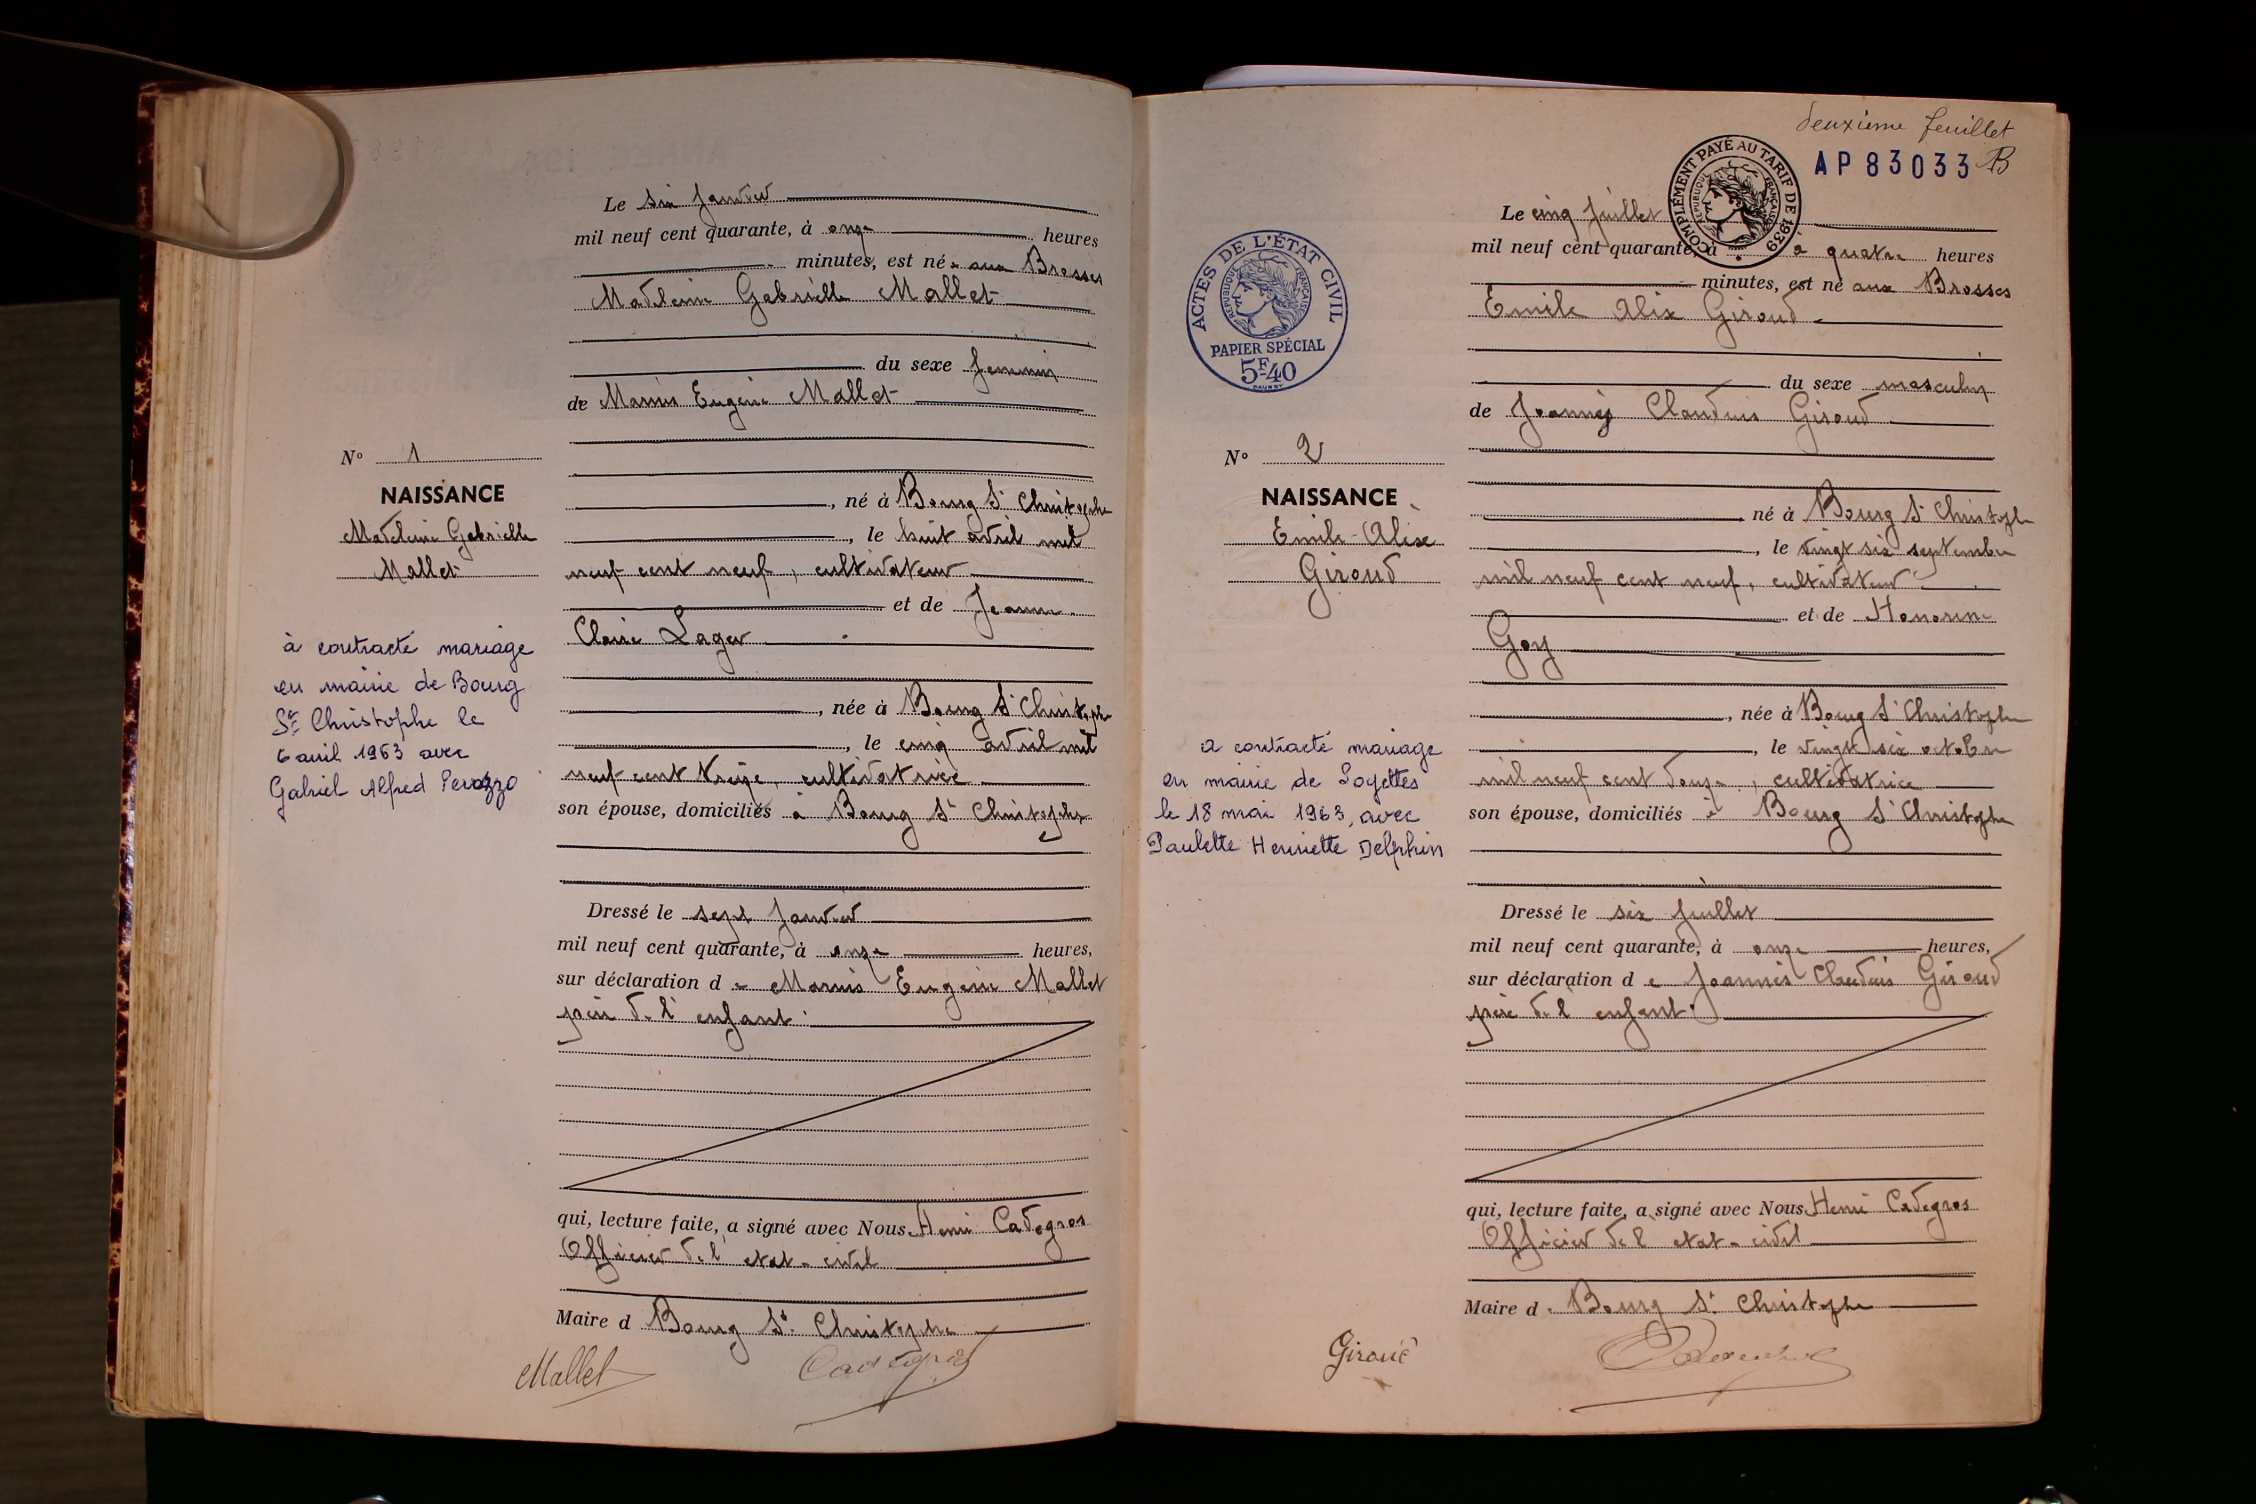 Le six Janvier
mil neuf cent quarante, à onze heures
minutes, est née aux Brosses
Madeleine Gabrielle Mallet
du sexe féminin
de Marius Eugène Mallet
N° 1
NAISSANCE
Madeleine Gabrielle
Mallet
né à Bourg St Christophe
, le huit avril mil
neuf cent neuf, cultivateur
et de Jeanne
Claire Lager
à contracté mariage
en mairie de Bourg
St Christophe le
6 avril 1963 avec
Gabriel Alfred Perazzo
, née à Bourg St Christophe
, le cinq avril mil
neuf cent treize, cultivatrice
son épouse, domiciliés à Bourg St Christophe
Dressé le sept Janvier
mil neuf cent quarante, à onze heures,
sur déclaration de Marius Eugène Mallet
père de l'enfant.
qui, lecture faite, a signé avec Nous Henri Cadegros
Officier de l'etat-civil
Maire d Bourg St. Christophe
Mallet Cadegros
deuxième feuillet
AP 83033 B
COMPLÉMENT PAYÉ AU TARIF DE 1939
RÉPUBLIQUE FRANÇAISE
Le cinq Juillet
mil neuf cent quarante, à a quatre heures
minutes, est né aux Brosses
Emile Alix Giroud
ACTES DE L'ÉTAT CIVIL
RÉPUBLIQUE FRANÇAISE
PAPIER SPÉCIAL
5F.40
du sexe masculin
de Joannès Claudius Giroud
N° 2
NAISSANCE
Emile-Alix
Giroud
né à Bourg St Christophe
, le vingt six septembre
mil neuf cent neuf, cultivateur
et de Honorine
Goy
a contracté mariage
en mairie de Loyettes
le 18 mai 1963, avec
Paulette Henriette Delphin
, née à Bourg St Christophe
, le vingt six octobre
mil neuf cent douze, cultivatrice
son épouse, domiciliés à Bourg St Christophe
Dressé le six Juillet
mil neuf cent quarante, à onze heures,
sur déclaration de Joannès Claudius Giroud
père de l'enfant.
qui, lecture faite, a signé avec Nous Henri Cadegros
Officier de l'etat-civil
Maire d. Bourg St. Christophe
Giroud